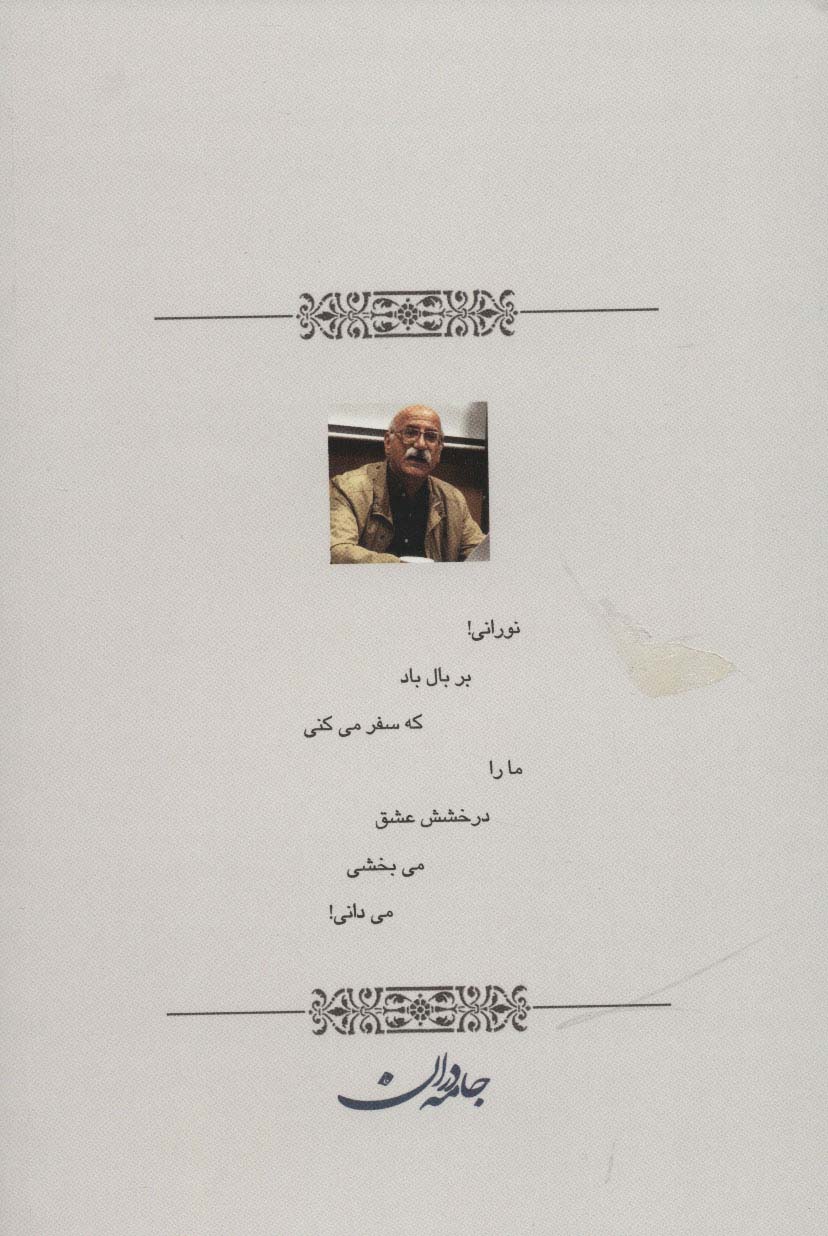 نورانی!
بر بال باد
که سفر می کنی
ما را
درخشش عشق
می بخشی
می دانی!
جامه دران